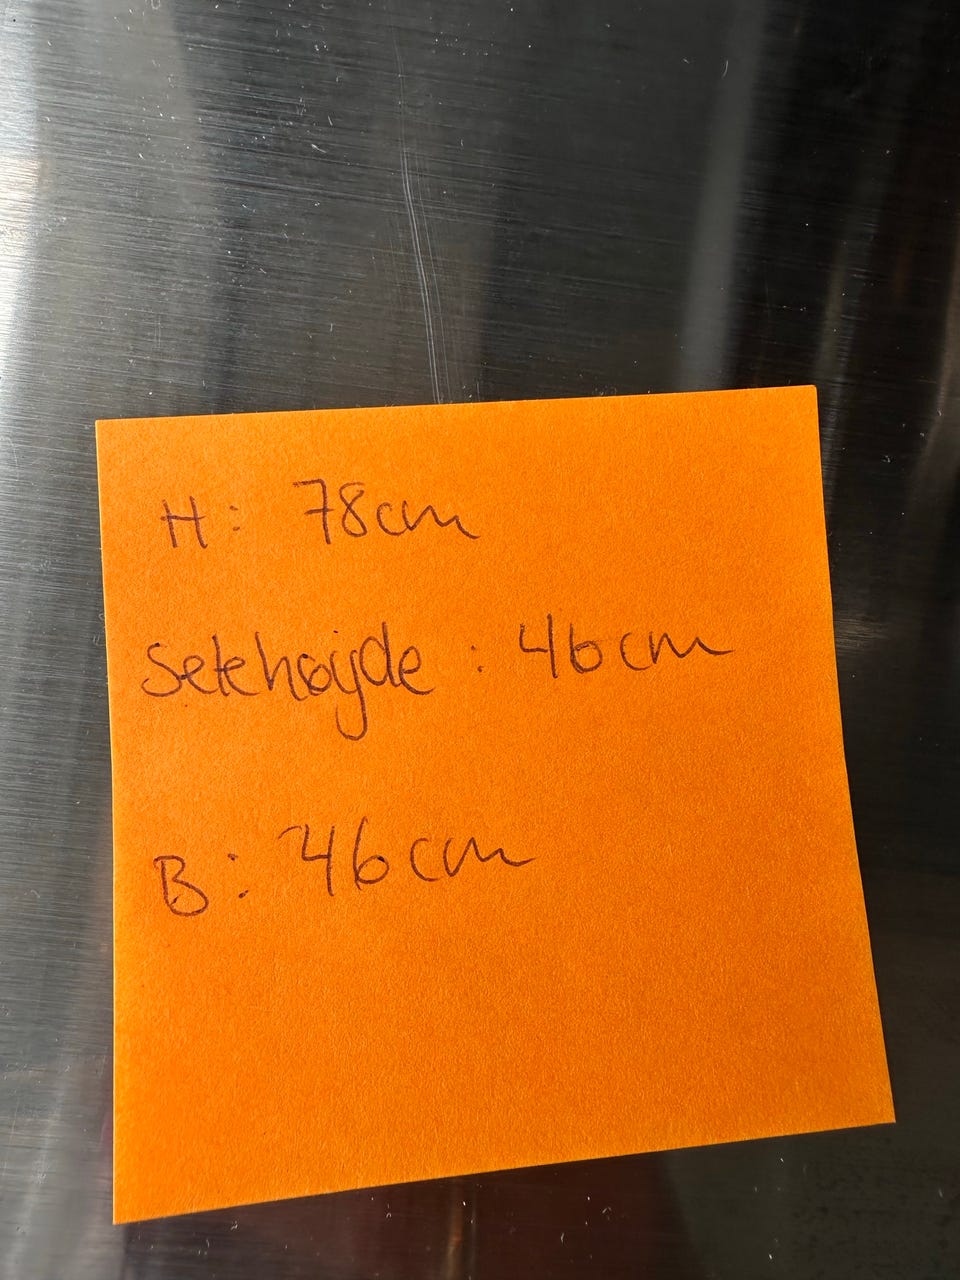 H: 78cm
Setehøyde: 46cm
B: 46cm